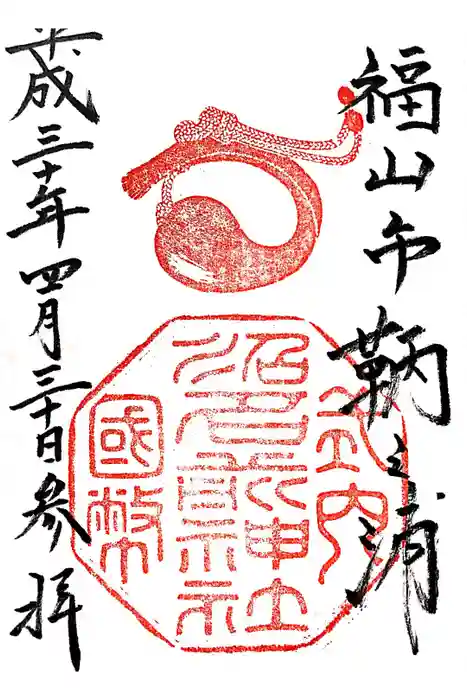 福山市鞆之浦
式内
沼名前神社
國幣
平成三十年四月三十日参拝